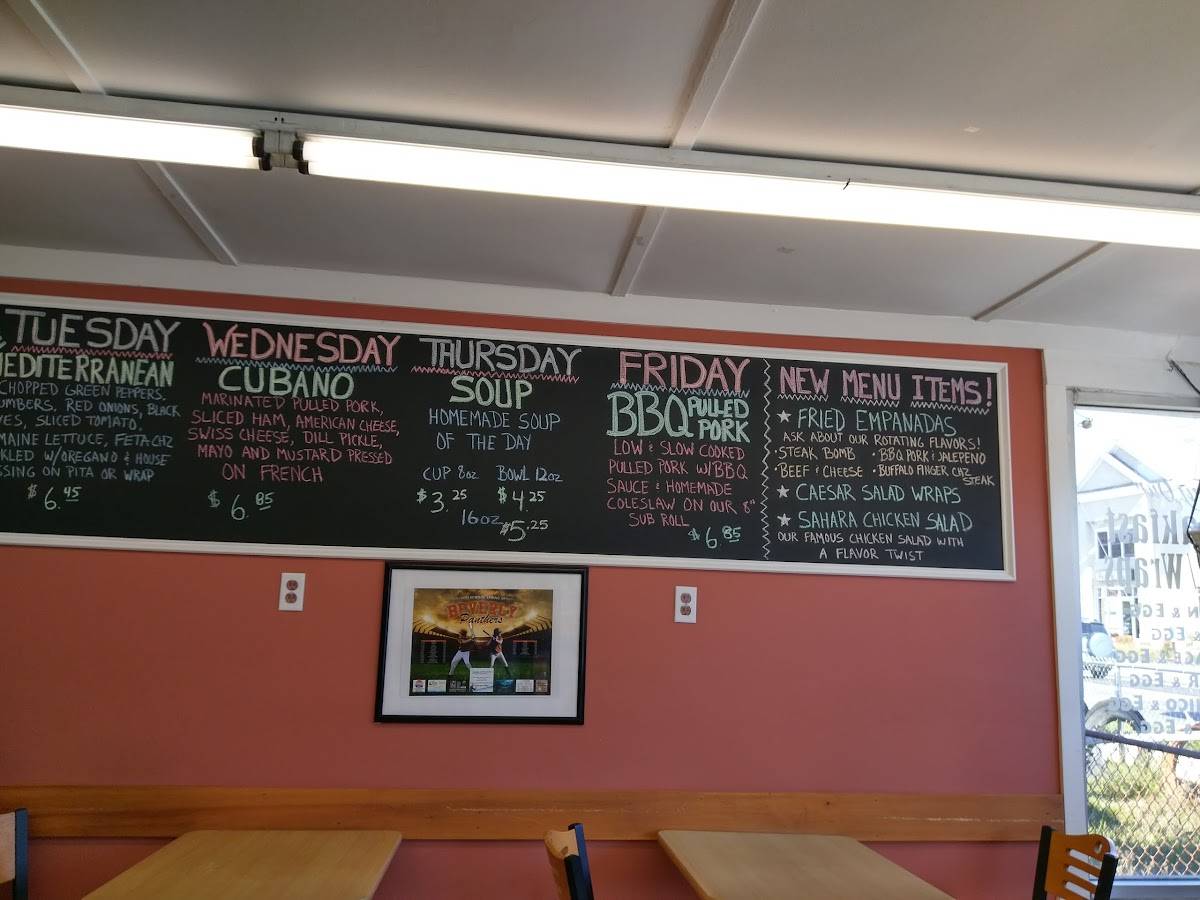 TUESDAY
MEDITERRANEAN
CHOPPED GREEN PEPPERS,
RED ONIONS, BLACK
SLICED TOMATO,
LETTUCE, FETA CHZ
W/OREGANO & HOUSE
ON PITA OR WRAP
$6.45
WEDNESDAY
CUBANO
MARINATED PULLED PORK,
SLICED HAM, AMERICAN CHEESE,
SWISS CHEESE, DILL PICKLE,
MAYO AND MUSTARD PRESSED
ON FRENCH
$6.85
THURSDAY
SOUP
HOMEMADE SOUP
OF THE DAY
CUP 8oz BOWL 12oz
$3.25 $4.25
16oz $5.25
FRIDAY
BBQ PULLED
PORK
LOW & SLOW COOKED
PULLED PORK W/BBQ
SAUCE & HOMEMADE
COLESLAW ON OUR 8"
SUB ROLL
$6.85
NEW MENU ITEMS!
★ FRIED EMPANADAS
ASK ABOUT OUR ROTATING FLAVORS!
·STEAK BOMB ·BBQ PORK & JALEPENO
·BEEF & CHEESE ·BUFFALO FINGER CHZ
STEAK
★ CAESAR SALAD WRAPS
★ SAHARA CHICKEN SALAD
OUR FAMOUS CHICKEN SALAD WITH
A FLAVOR TWIST
BEVERLY
Panthers
& EGG
& EGG
& EGG
& EGG
& EGG
& EGG